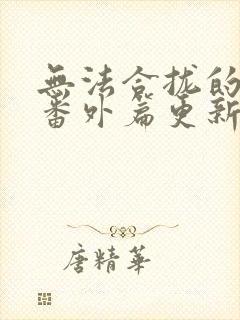 無法合拢的
番外篇更新
唐精華